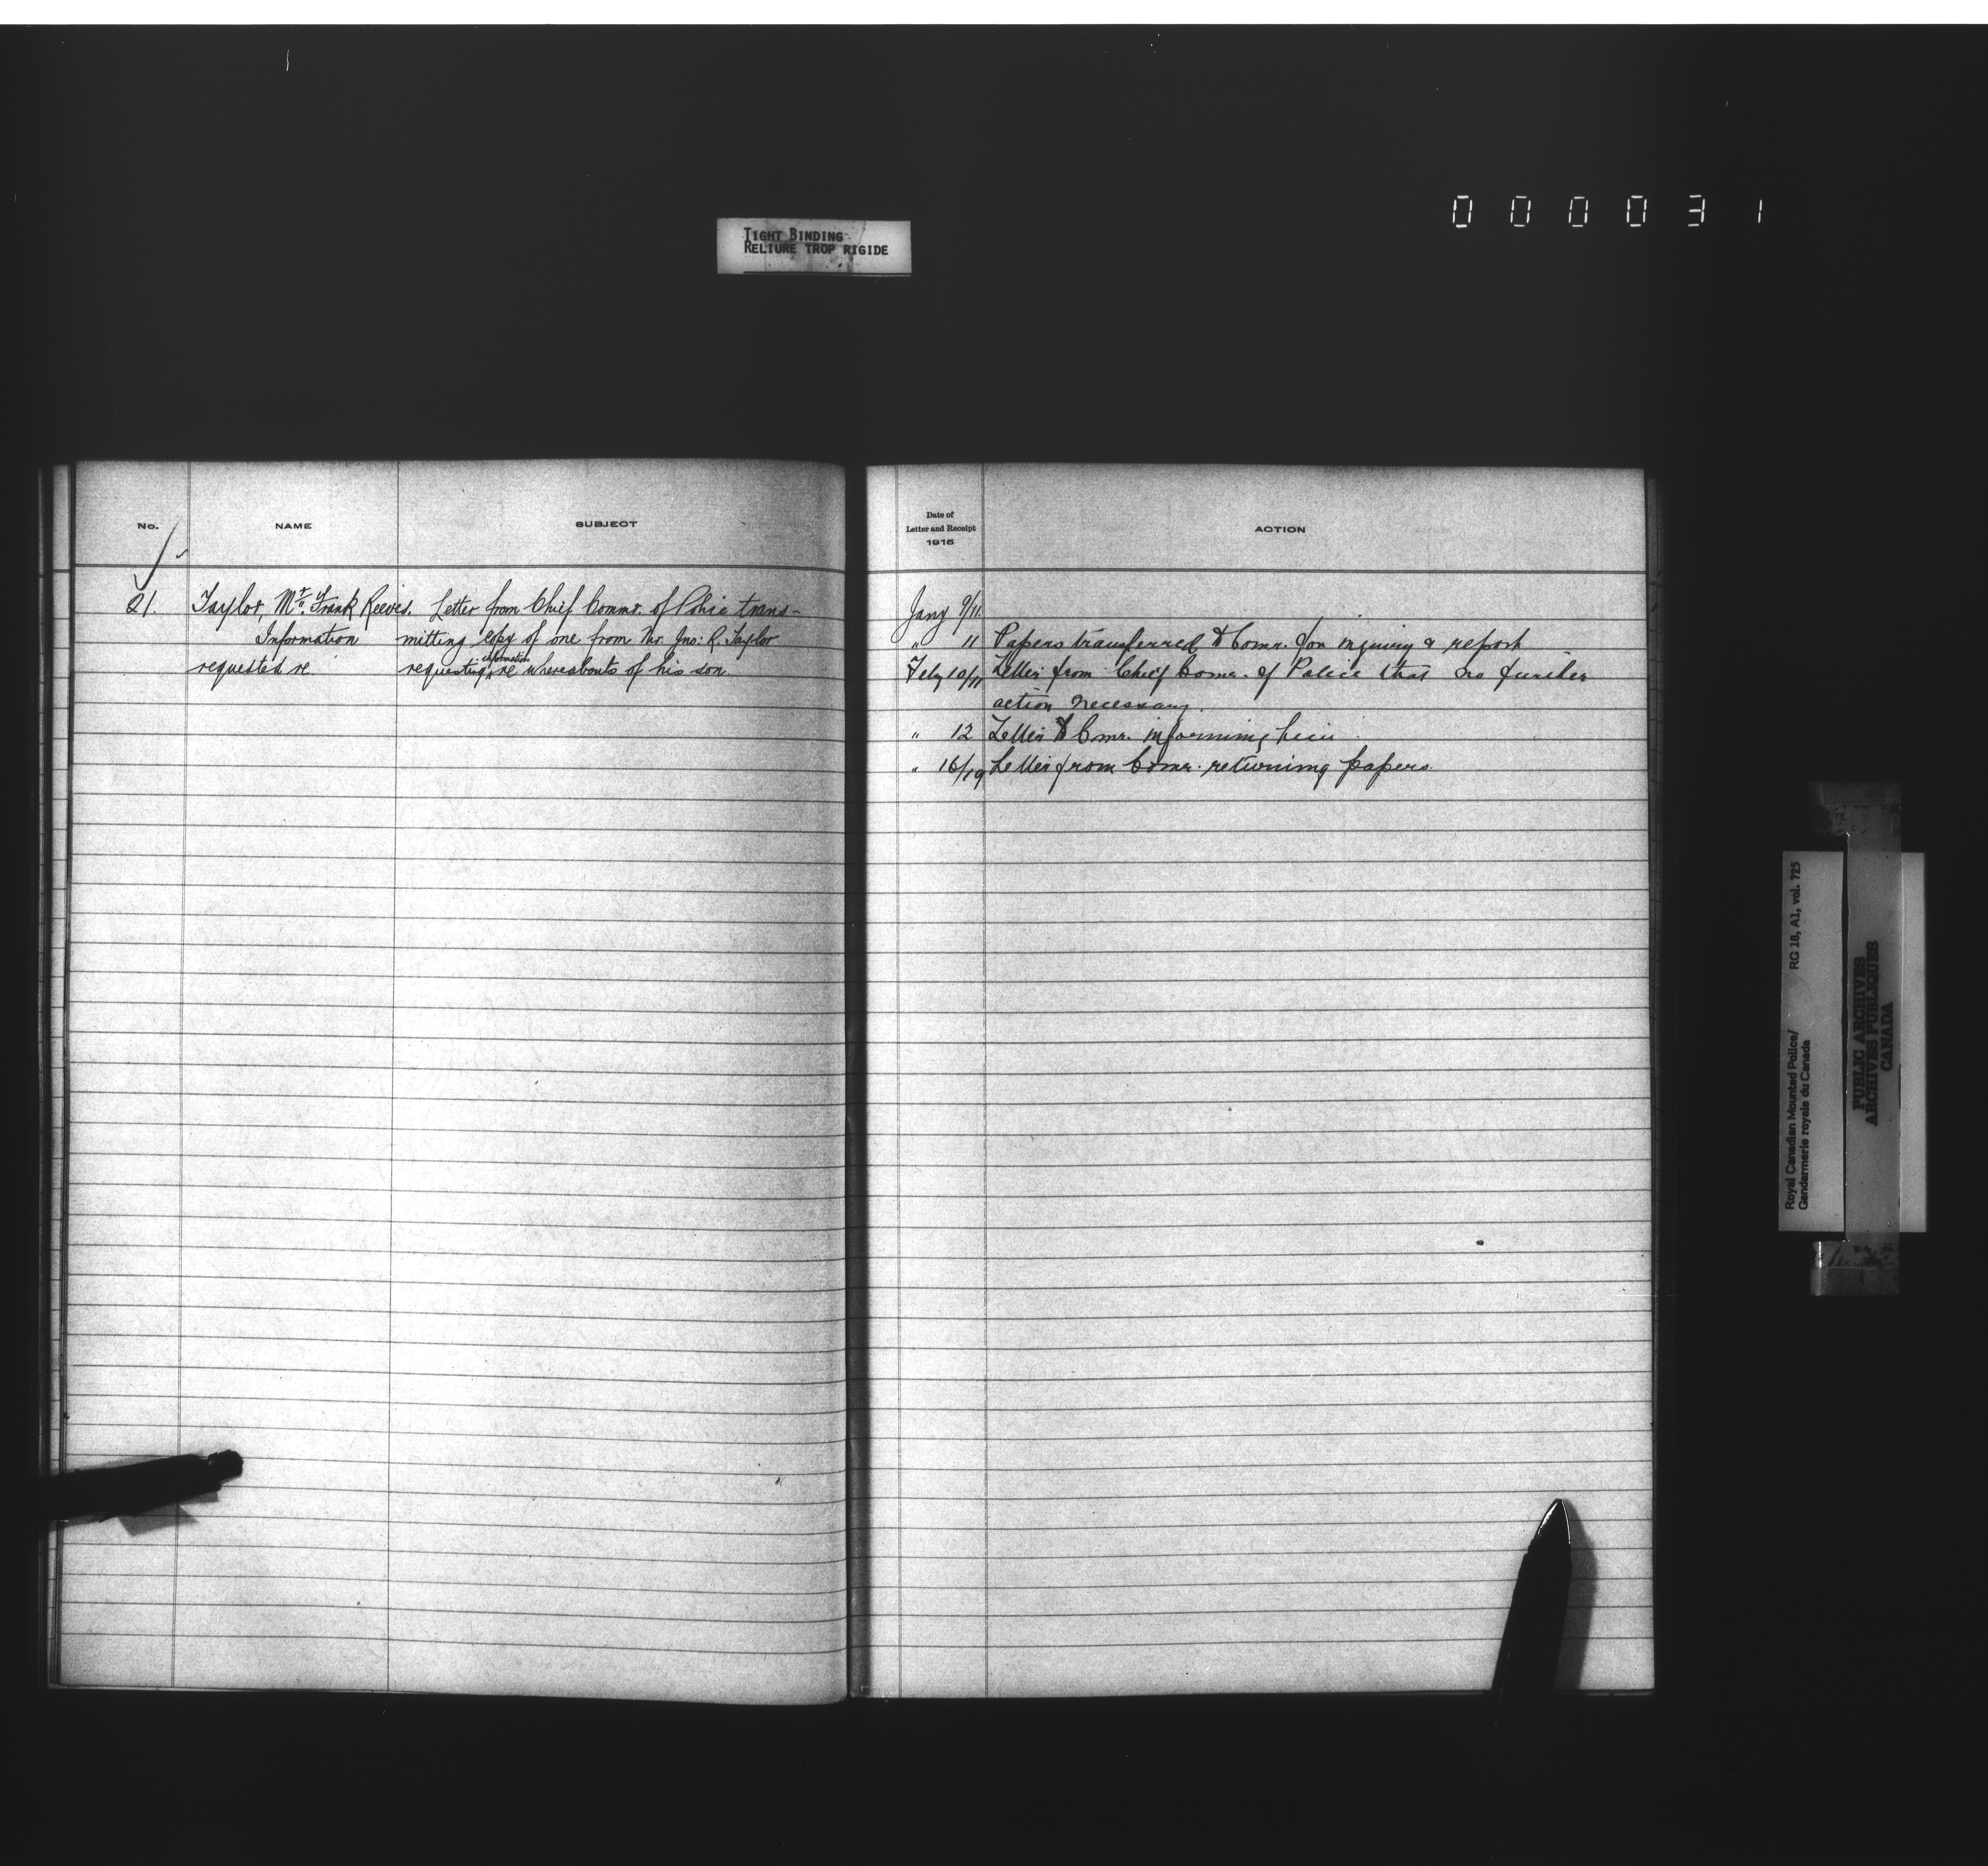 000031
TIGHT BINDING
RELIURE TROP RIGIDE
No.
NAME
SUBJECT
21. Taylor, Mr. Frank Reeves. Letter from Chief Commr. of Police trans-
Information mitting copy of one from Mr. Jno: R. Taylor
requested re requesting information re whereabouts of his son.
Date of
Letter and Receipt
1915
ACTION
Jany 9/11.
" 11 Papers transferred to Comr. for inquiry & report
Feby 10/11 Letter from Chief Comr. of Police that no further
action necessary.
" 12 Letter to Comr. informing him.
" 16/19 Letter from Comr. returning papers.
Royal Canadian Mounted Police/
Gendarmerie royale du Canada
RG 18, A1, vol. 725
PUBLIC ARCHIVES
ARCHIVES PUBLIQUES
CANADA